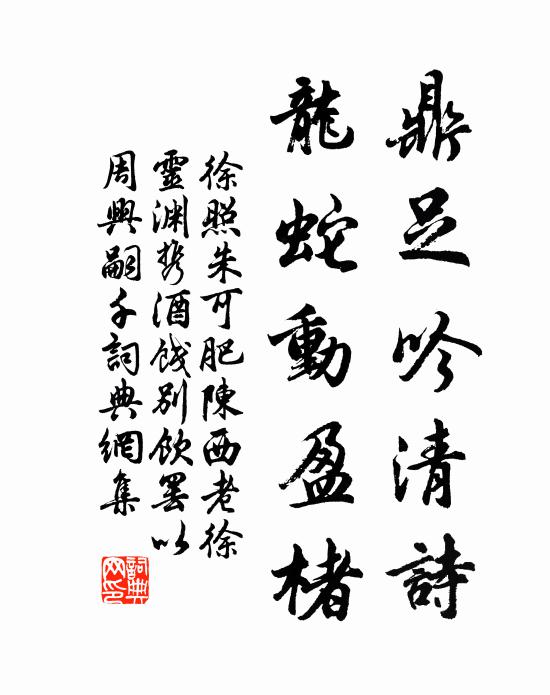 鼎足吟清詩
龍蛇動盈楮
徐照朱可肥陳西老徐
靈淵携酒餞別飲罷以
周興嗣千詞典網集
詞典网印